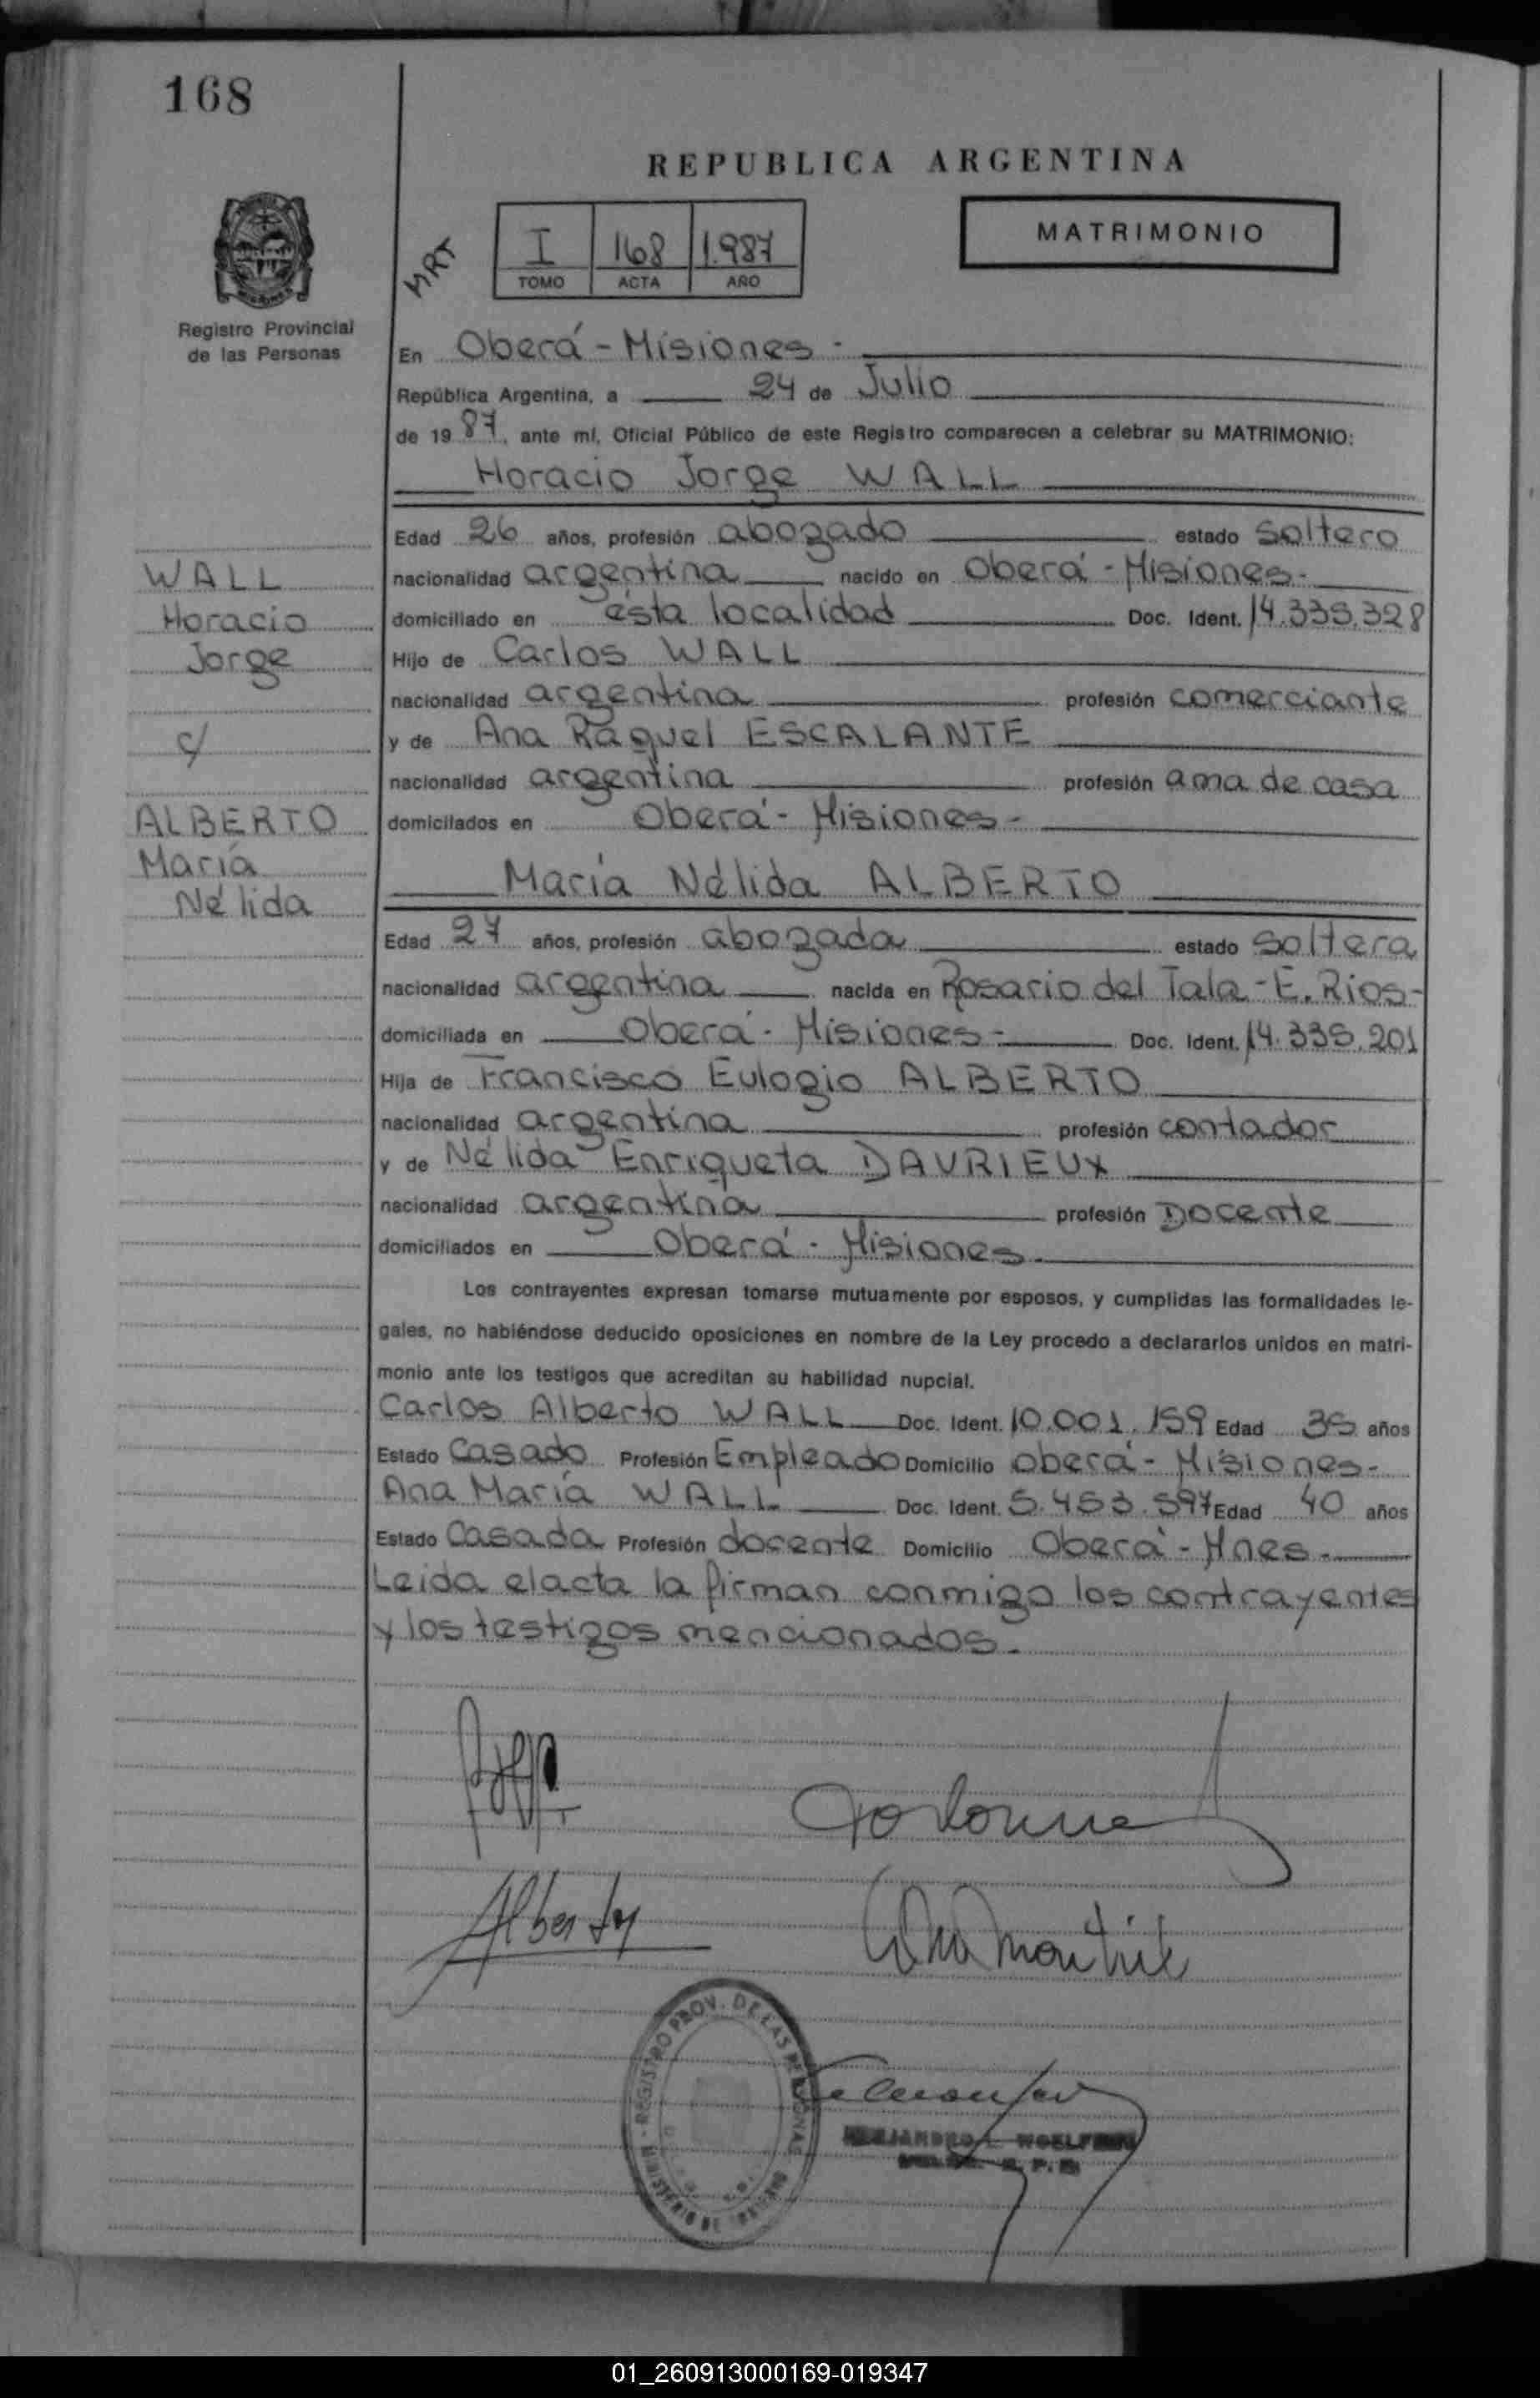 168
REPUBLICA ARGENTINA
MATRIMONIO
MRT
I 168 1.987
TOMO ACTA AÑO
Registro Provincial
de las Personas
En Oberá - Misiones -
República Argentina, a 24 de Julio
de 1987, ante mí, Oficial Público de este Registro comparecen a celebrar su MATRIMONIO:
Horacio Jorge WALL
Edad 26 años, profesión abogado estado soltero
nacionalidad argentina nacido en Oberá - Misiones-
domiciliado en ésta localidad Doc. Ident. 14.335.328
Hijo de Carlos WALL
nacionalidad argentina profesión comerciante
y de Ana Raquel ESCALANTE
nacionalidad argentina profesión ama de casa
domicilados en Oberá - Misiones -
WALL
Horacio
Jorge
c/
ALBERTO
María
Nélida
María Nélida ALBERTO
Edad 27 años, profesión abogada estado soltera
nacionalidad argentina nacida en Rosario del Tala - E. Rios-
domiciliada en Oberá - Misiones - Doc. Ident. 14.335.201
Hija de Francisco Eulogio ALBERTO
nacionalidad argentina profesión contador
y de Nélida Enriqueta DAVRIEUX
nacionalidad argentina profesión Docente
domiciliados en Oberá - Misiones.
Los contrayentes expresan tomarse mutuamente por esposos, y cumplidas las formalidades le-
gales, no habiéndose deducido oposiciones en nombre de la Ley procedo a declararlos unidos en matri-
monio ante los testigos que acreditan su habilidad nupcial.
Carlos Alberto WALL Doc. Ident. 10.001.159 Edad 35 años
Estado Casado Profesión Empleado Domicilio Oberá - Misiones-
Ana María WALL Doc. Ident. 5.453.597 Edad 40 años
Estado Casada Profesión docente Domicilio Oberá - Mnes.
Leida el acta la firman conmigo los contrayentes
y los testigos mencionados.
Alberto
REGISTRO PROV. DE LAS PERSONAS
MINISTERIO DE GOBIERNO
01_260913000169-019347